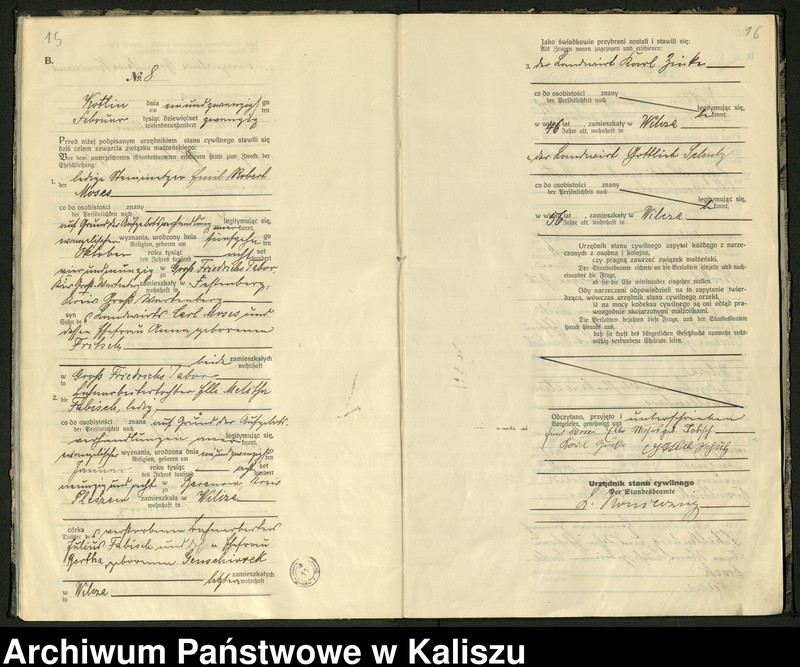 15
B.
№ 8
Kotlin dnia am einundzwanzigst go ten
Februar tysiąc dziewięćset tausendneunhundert zwanzig
Przed niżej podpisanym urzędnikiem stanu cywilnego stawili się
dziś celem zawarcia związku małżeńskiego:
Vor dem unterzeichneten Standesbeamten erschienen heute zum Zwecke der
Eheschließung:
1. der ledige Emil Robert
Moses
co do osobistości znany
der Persönlichkeit nach
auf Grund der Aufgebotsverhandlung legitymując się,
aner kannt,
evangelischer wyznania, urodzony dnia fünfzehn go
Religion, geboren am ten
Oktober roku tysiąc acht set
des Jahres tausend hundert
vierundneunzig w zu Groß Friedrichs Tabor
Kreis Groß Wartenberg zamieszkały w wohnhaft in Festenberg,
Kreis Groß Wartenberg
syn Sohn des Landwirts Carl Moses und
dessen Ehefrau Anna geborenen
Fritsch
beide zamieszkałych
wohnhaft
w in Groß Friedrichs Tabor
2. die Bahnarbeitertochter Elli
Fabisch, ledig
co do osobistości znana auf Grund der Aufgebots-
der Persönlichkeit nach
verhandlungen aner legitymując się,
kannt,
evangelischer wyznania, urodzona dnia einundzwanzigst go
Religion, geboren am ten
Januar roku tysiąc acht set
des Jahres tausend hundert
neunzig und acht w zu Baranow Kreis
Pleschen zamieszkała w wohnhaft in Wilcza
córka Tochter des verstorbenen Bahnarbeiters
Julius Fabisch und Ehefrau
Bertha geborenen
letztere zamieszkałych
wohnhaft
w in Wilcza
16
Jako świadkowie przybrani zostali i stawili się:
Als Zeugen waren zugezogen und erschienen:
3. der Landwirt Karl Zinke
co do osobistości znany
der Persönlichkeit nach
legitymując się,
be kannt,
w wieku 46 lat, zamieszkały w Wilcza
Jahre alt, wohnhaft in
4. der Landwirt Gottlieb Schulz
co do osobistości znany
der Persönlichkeit nach
legitymując się,
be kannt,
w wieku 56 lat, zamieszkały w Wilcza
Jahre alt, wohnhaft in
Urzędnik stanu cywilnego zapytał każdego z narze-
czonych z osobna i kolejno,
czy pragną zawrzeć związek małżeński.
Der Standesbeamte richtete an die Verlobten einzeln und nach-
einander die Frage,
ob sie die Ehe miteinander eingehen wollen.
Gdy narzeczeni odpowiedzieli na to zapytanie twier-
dząco, wówczas urzędnik stanu cywilnego orzekł,
iż na mocy kodeksu cywilnego są oni odtąd pra-
wozgodnie skojarzonymi małżonkami.
Die Verlobten bejahten diese Frage, und der Standesbeamte
sprach hierauf aus,
daß sie kraft des bürgerlichen Gesetzbuchs nunmehr recht-
mäßig verbundene Eheleute seien.
Odczytano, przyjęto i unterschrieben
Vorgelesen, genehmigt und
Emil Moses Elli Moses geb. Fabisch
Karl Zinke Gottlieb Schulz
Urzędnik stanu cywilnego
Der Standesbeamte
Archiwum Państwowe w Kaliszu